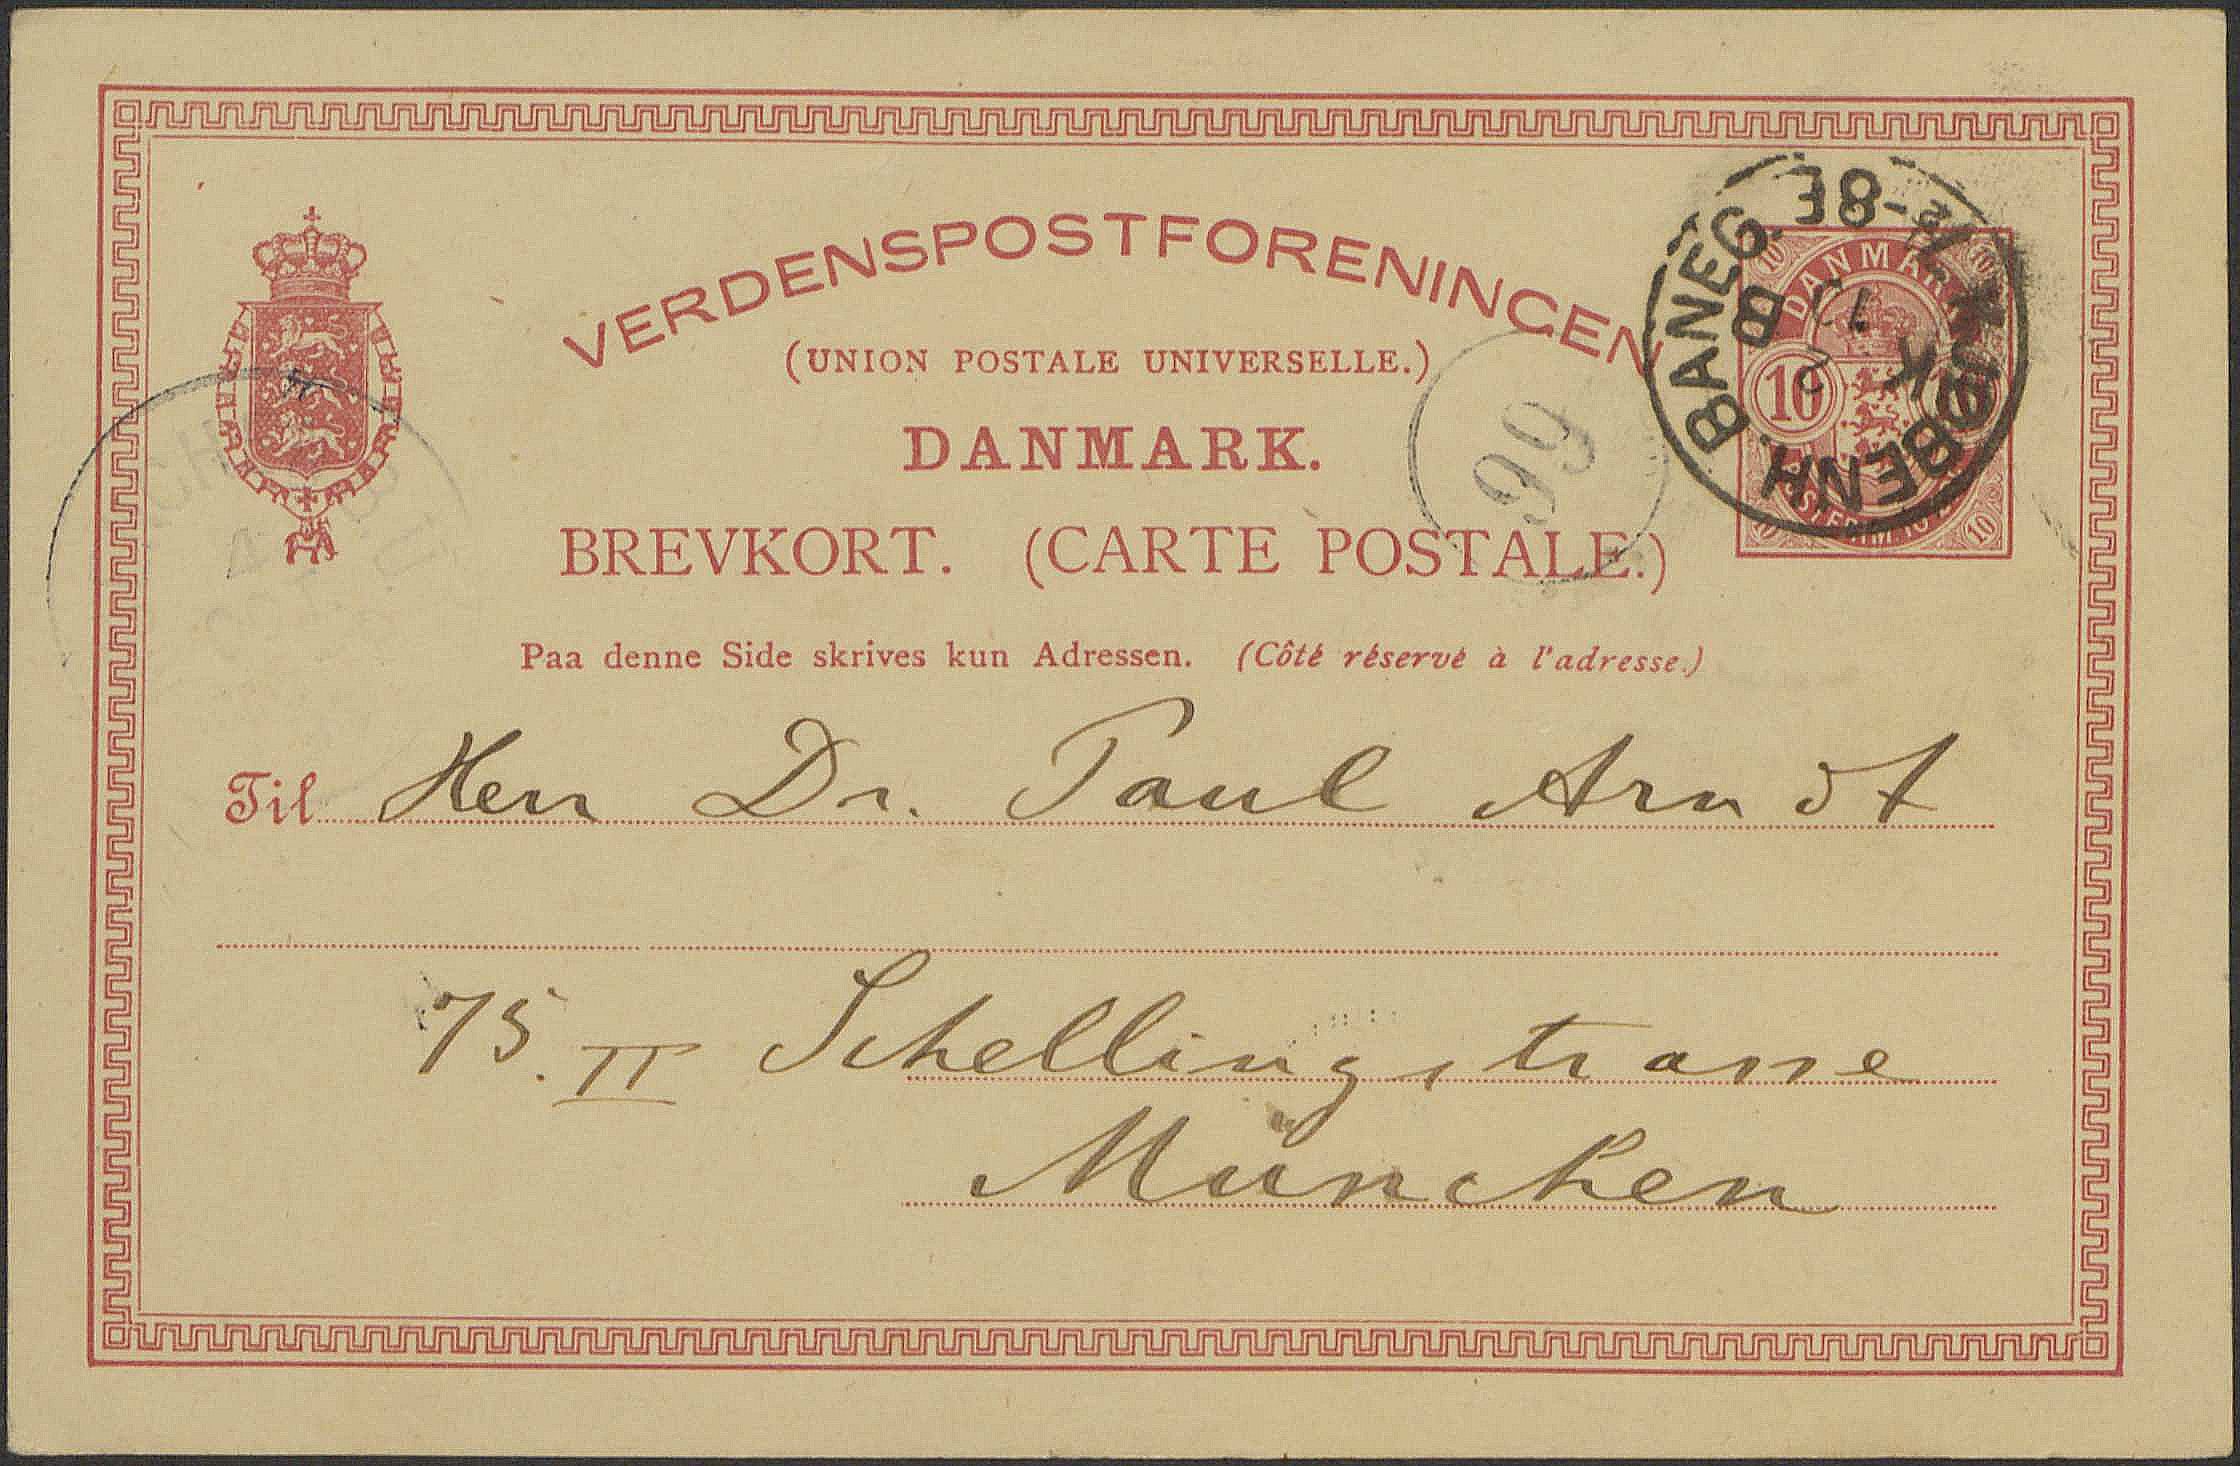 VERDENSPOSTFORENINGEN
(UNION POSTALE UNIVERSELLE.)
DANMARK.
BREVKORT. (CARTE POSTALE.)
Paa denne Side skrives kun Adressen. (Côté réservé à l'adresse.)
DANMARK
10
10
10
10
KJØBENH. BANEG.
8E
B
K
66
Til Herr Dr. Paul Arndt
75. II Schellingstrasse
München